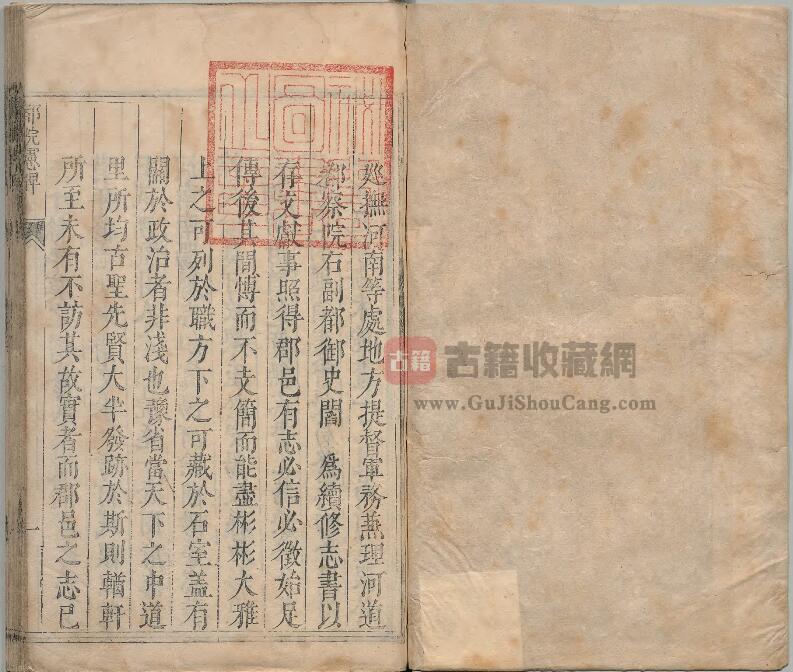 廵撫河南等處地方提督軍務兼理河道
都察院右副都御史閻　為續修志書以
存文獻事照得郡邑有志必信必徵始足
傳後其間愽而不支簡而能盡彬彬大雅
上之可列於職方下之可藏於石室蓋有
關於政治者非淺也豫省當天下之中道
里所均古聖先賢大半發跡於斯則輶軒
所至未有不訪其故實者而郡邑之志已
都院憲牌
一
古籍 古籍收藏網
www.GuJiShouCang.com